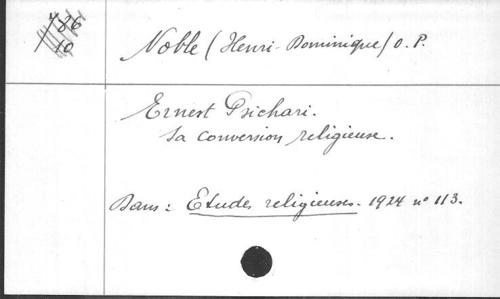 786
10
Noble (Henri-Dominique) O. P.
Ernest Psichari.
Sa conversion religieuse.
Dans : Etudes religieuses. 1924 n° 113.